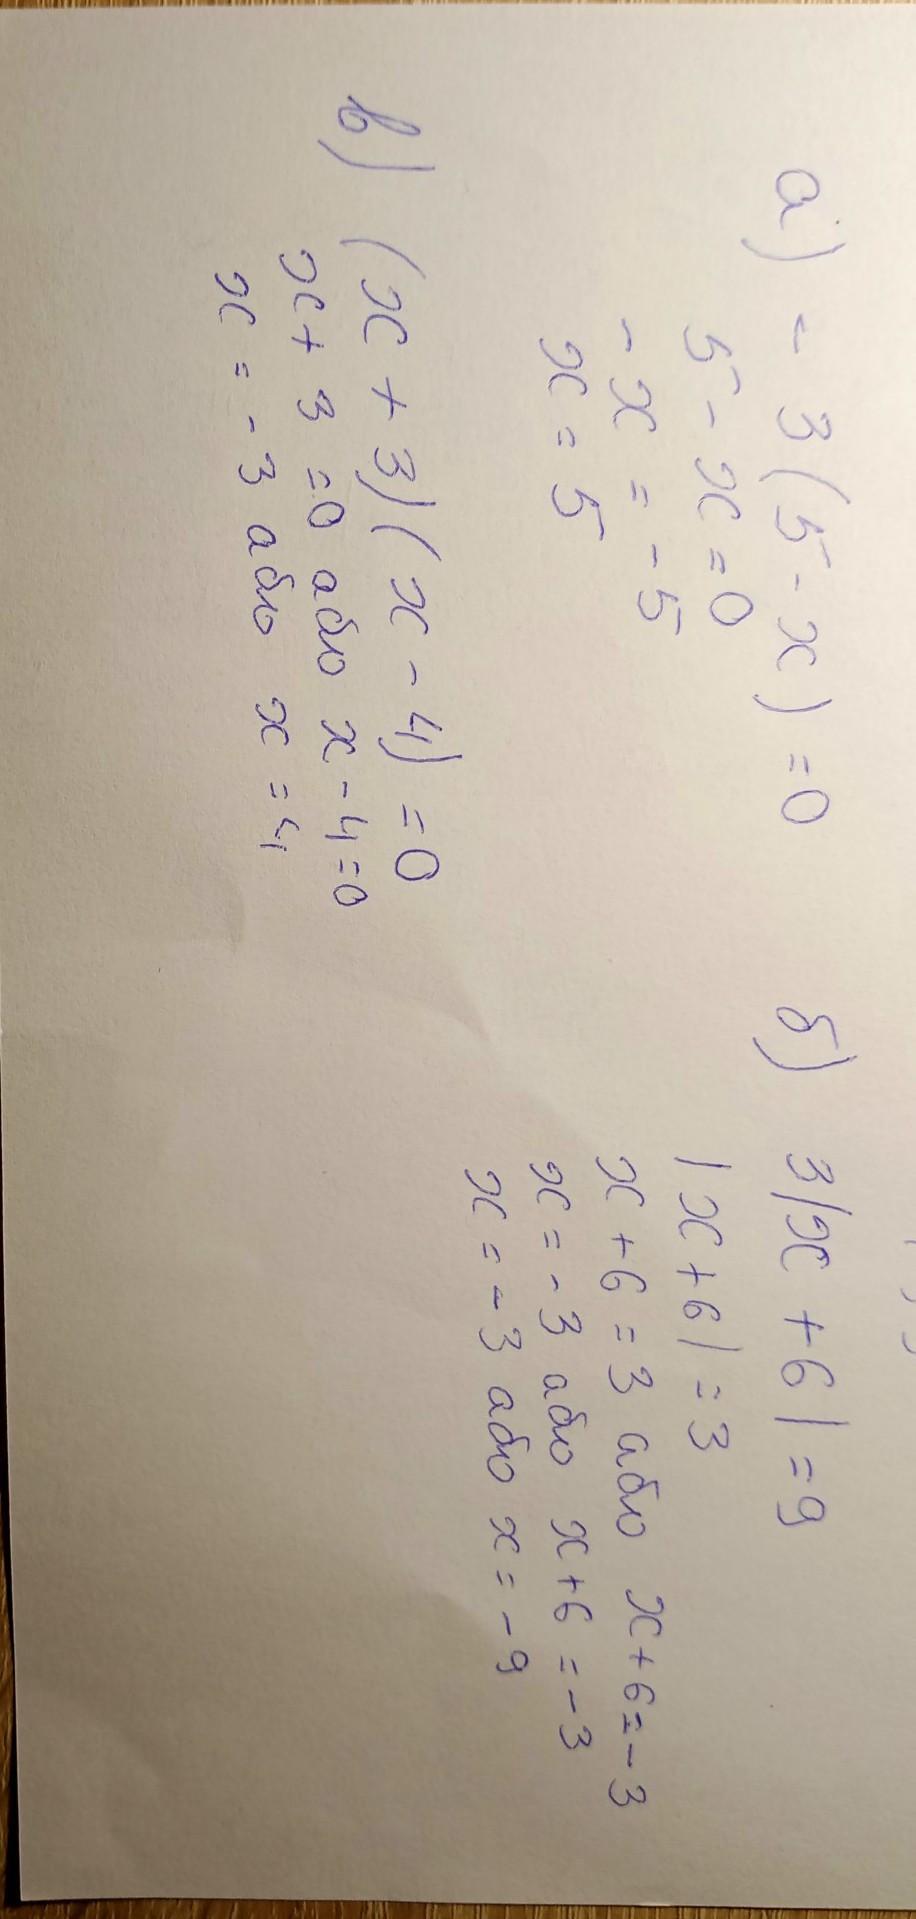 а) - 3(5 - x) = 0
5 - x = 0
- x = - 5
x = 5
б) 3|x + 6| = 9
|x + 6| = 3
x + 6 = 3 або x + 6 = - 3
x = - 3 або x + 6 = - 3
x = - 3 або x = - 9
в) (x + 3)(x - 4) = 0
x + 3 = 0 або x - 4 = 0
x = - 3 або x = 4